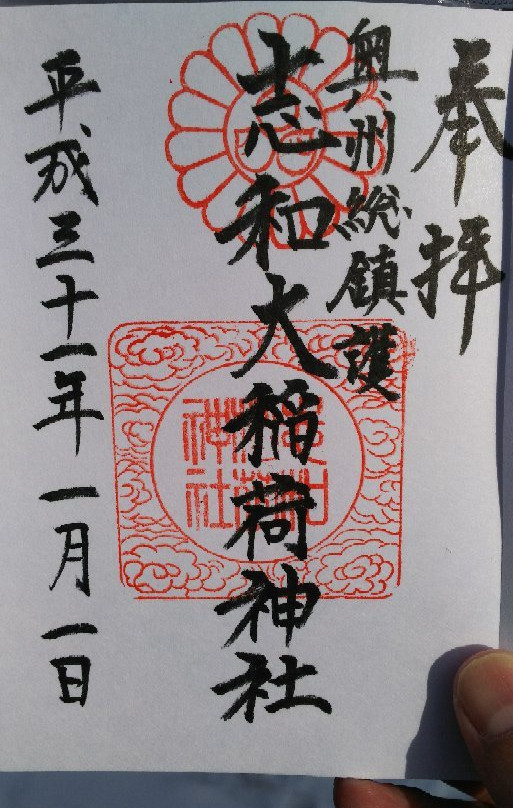 奉拝
奥州総鎮護
志和大稲荷神社
平成三十一年一月一日